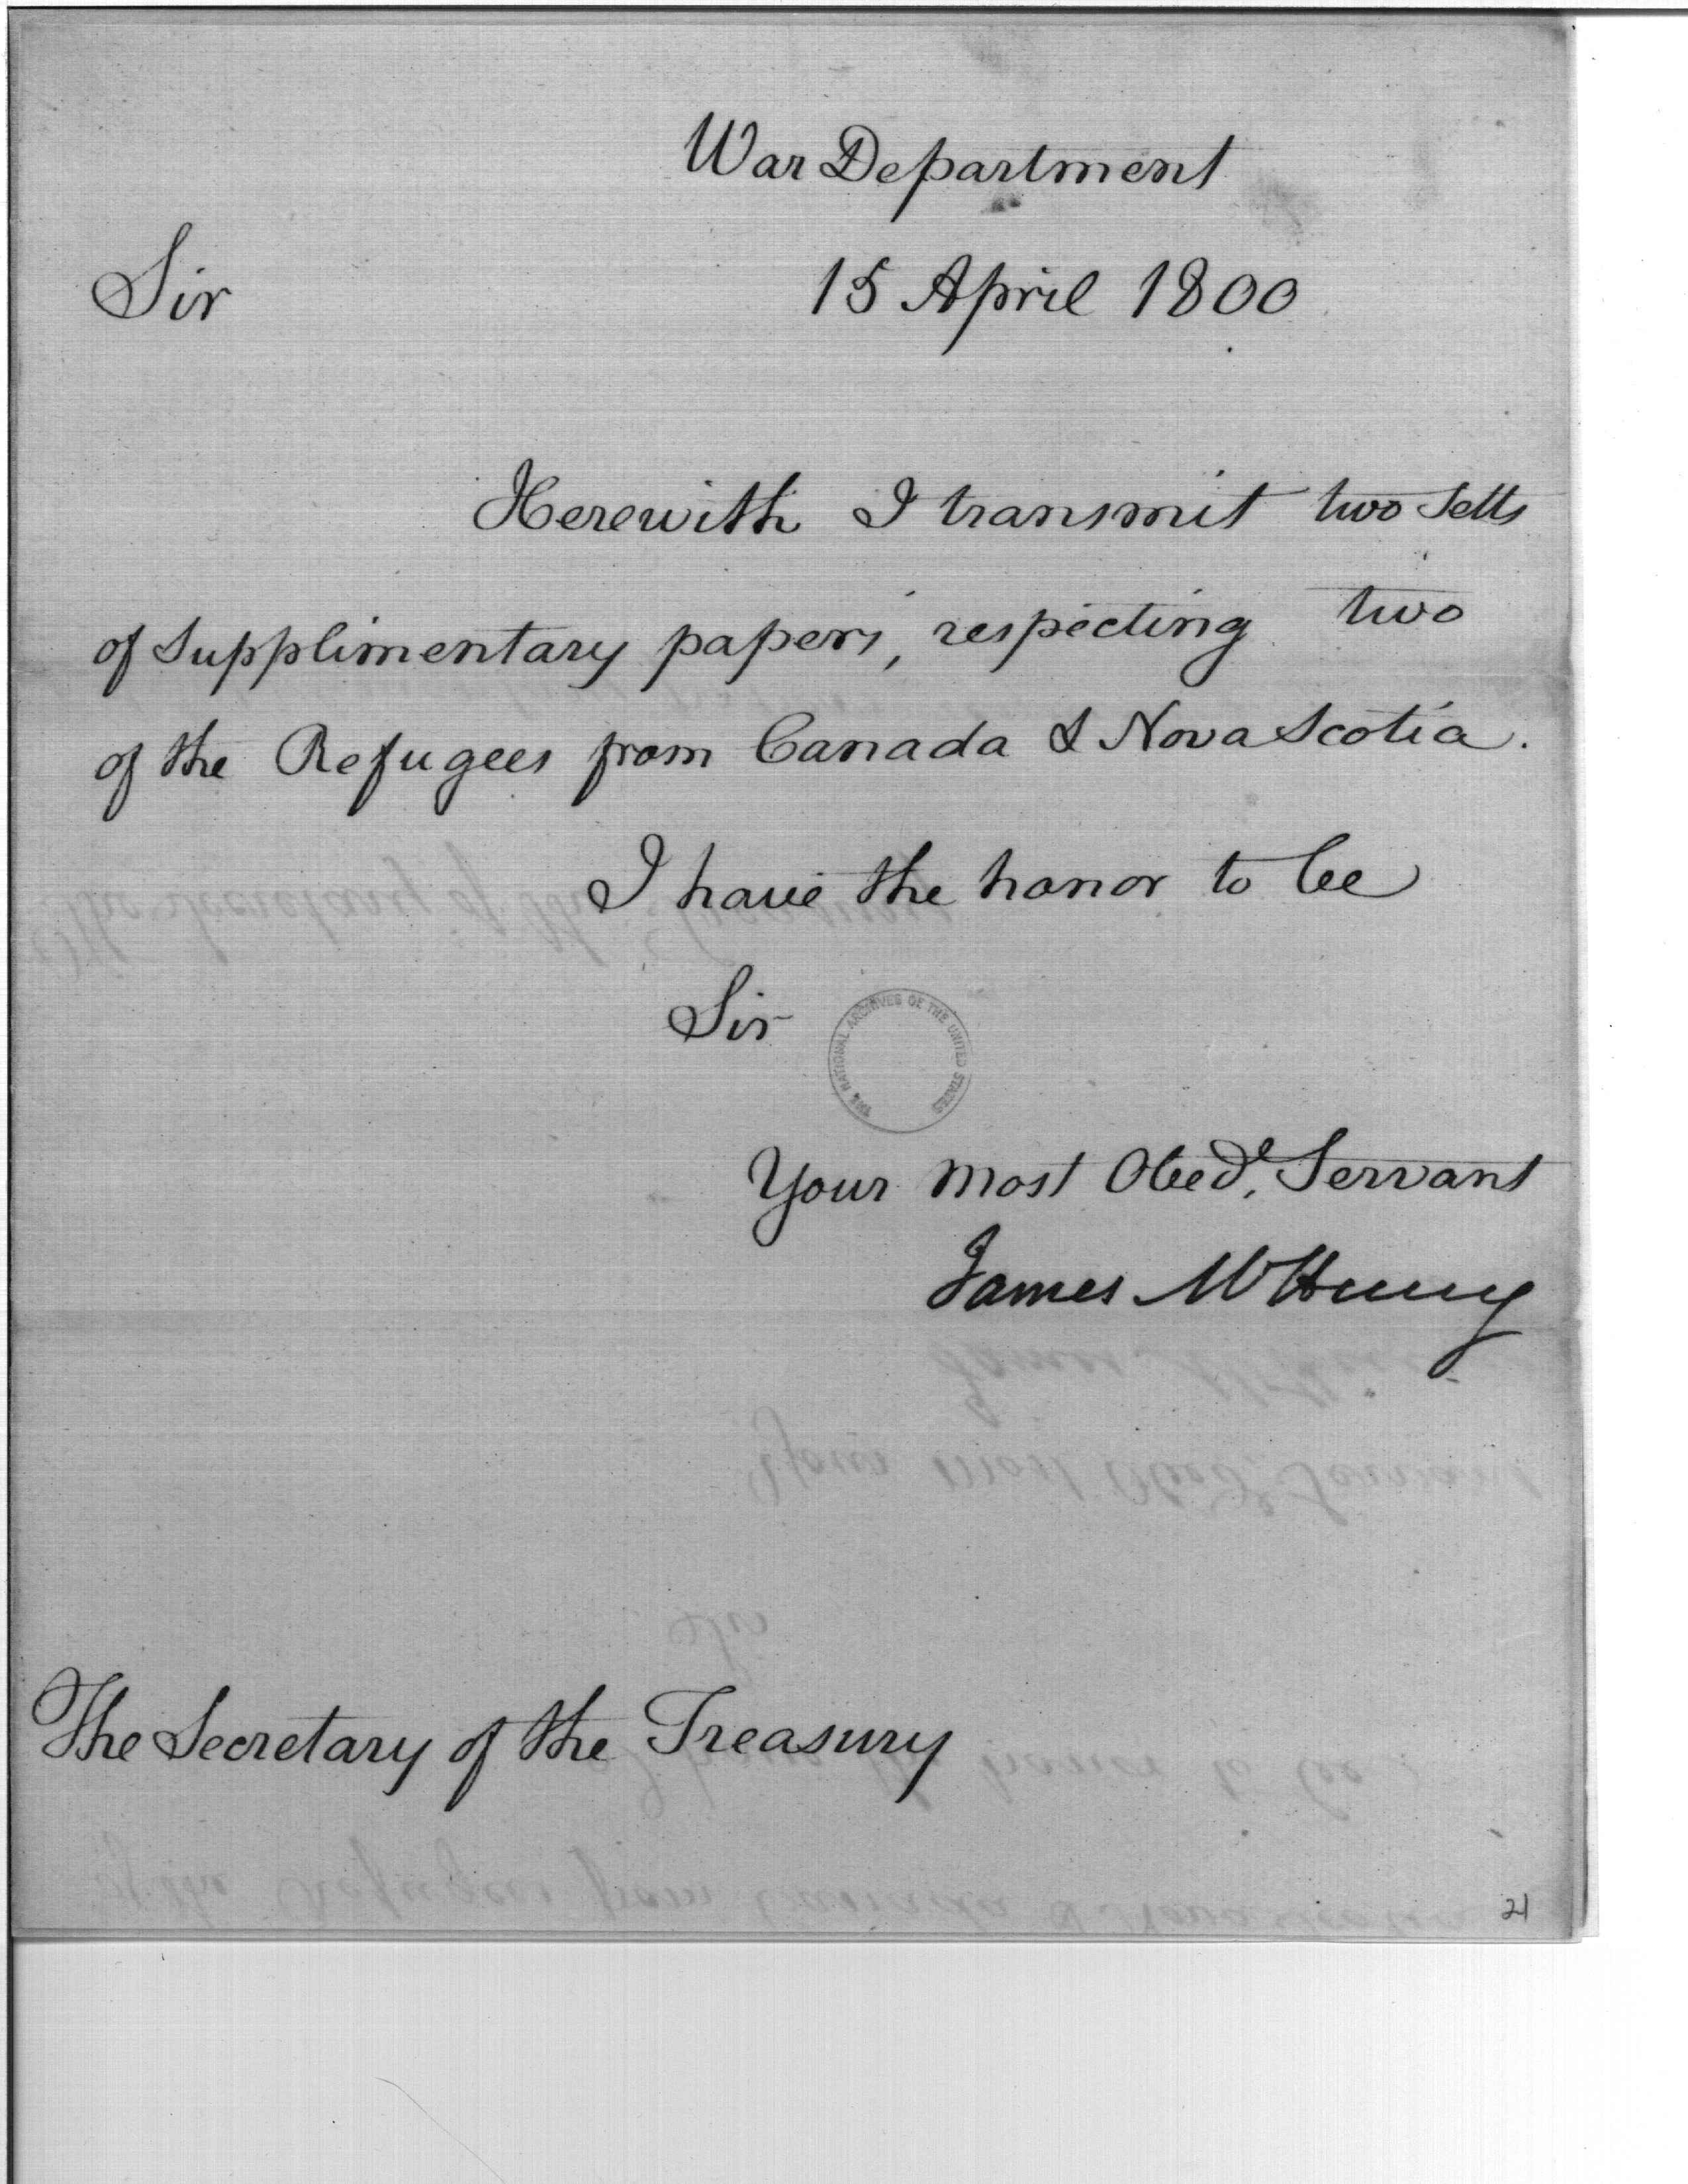 War Department
Sir
15 April 1800
Herewith I transmit two Setts
of Supplimentary papers, respecting two
of the Refugees from Canada & Nova Scotia.
I have the honor to be
Sir
THE NATIONAL ARCHIVES OF THE UNITED STATES
Your most Obedt. Servant
James McHenry
The Secretary of the Treasury
21